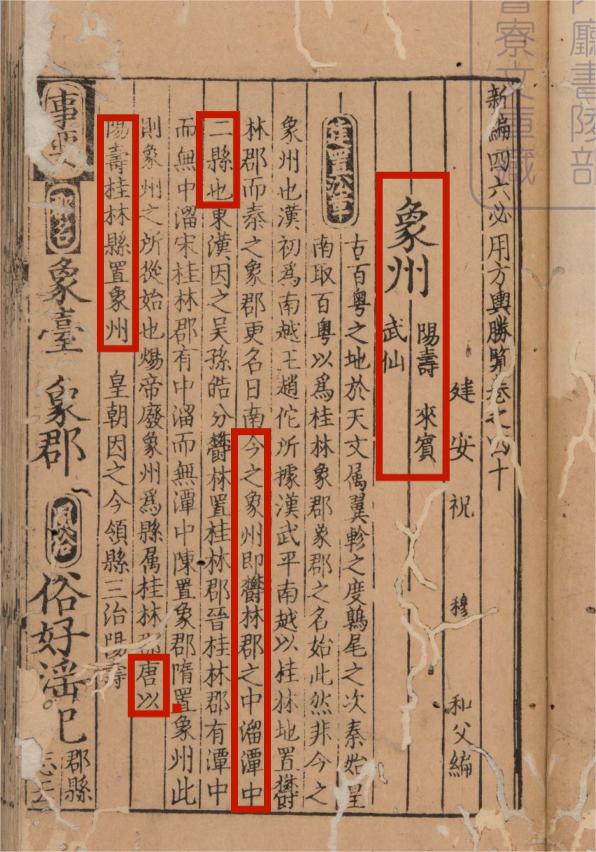 廳書陵部
寮文庫藏
新編四六必用方輿勝覽卷之四十
建安祝 穆 和父編
象州 陽壽 來賓 武仙
建置沿革
古百粵之地於天文属翼軫之度鶉尾之次秦始皇
南取百粵以爲桂林象郡象郡之名始此然非今之
象州也漢初爲南越王趙佗所據漢武平南越以桂林地置欝
林郡而秦之象郡更名日南今之象州即欝林郡之中溜潭中
二縣也東漢因之吴孫皓分欝林置桂林郡晉桂林郡有潭中
而無中溜宋桂林郡有中溜而無潭中陳置象郡隋置象州此
則象州之所從始也煬帝廢象州爲縣属桂林郡唐以
陽壽桂林縣置象州 皇朝因之今領縣三治陽壽
事要 郡名 象臺 象郡 風俗 俗好滛巳 郡縣志云